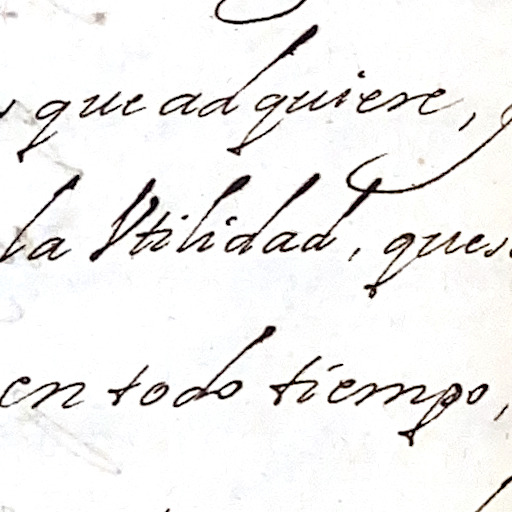 que adquiere,
la Vtilidad, que
en todo tiempo,